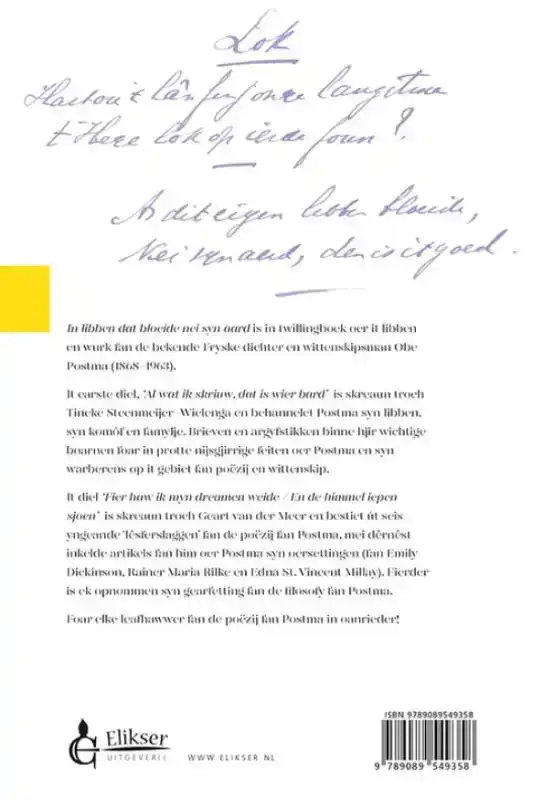 Lok
lân
lok op
?
As dit eigen libben bloeide,
Nei syn aerd, den is it goed.
In libben dat bloeide nei syn aard is in twillingboek oer it libben
en wurk fan de bekende Fryske dichter en wittenskipsman Obe
Postma (1868–1963).
It earste diel, ‘Al wat ik skriuw, dat is wier bard’ is skreaun troch
Tineke Steenmeijer-Wielenga en behannelet Postma syn libben,
syn komôf en famylje. Brieven en argyfstikken binne hjir wichtige
boarnen foar in protte nijsgjirrige feiten oer Postma en syn
warberens op it gebiet fan poëzij en wittenskip.
It diel ‘Fier haw ik myn dreamen weide / En de himmel iepen
sjoen’ is skreaun troch Geart van der Meer en bestiet út seis
yngeande ‘lêsferslaggen’ fan de poëzij fan Postma, mei dêrnêst
inkelde artikels fan him oer Postma syn oersettingen (fan Emily
Dickinson, Rainer Maria Rilke en Edna St. Vincent Millay). Fierder
is ek opnommen syn gearfetting fan de filosofy fan Postma.
Foar elke leafhawwer fan de poëzij fan Postma in oanrieder!
ISBN 9789089549358
Elikser
UITGEVERIJ
WWW.ELIKSER.NL
9 789089 549358